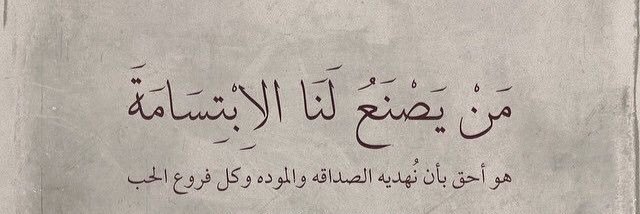 مَنْ يَصْنَعُ لَنَا الاِبْتِسَامَةَ
هو أحق بأن نُهديه الصداقه والموده وكل فروع الحب